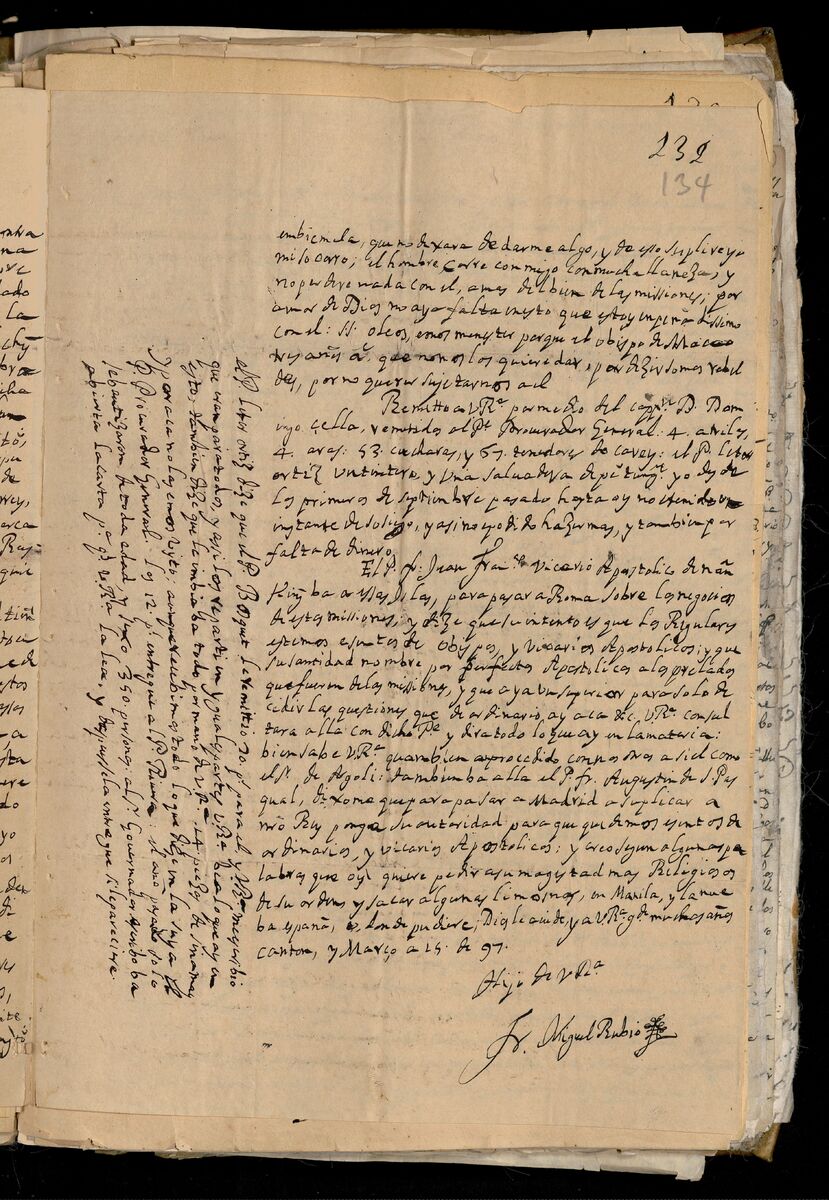 232
134
embiemela, que no dexara de darme algo, y de esso suplire yo
mi socorro; el hombre corre conmigo con mucha llaneza; y
no perdere nada con el, a mas del bien de las missiones; por
amor de Dios no aya falta en esto que estoy empeñadissimo
con el: SS. oleos, emos menester porque el obispo de Macao
tres años a. que no nos los quiere dar, por dezir somos rebel
des, por no querer sujetarnos a el
Remitto a VRª por medio del capp.n D. Dom
ingo Çella, remitidos al Pe Procurador General: 4. atriles,
4. aras: 53. cucharas, y 67. tenedores de carey: el P. Libor
ortiz un tintero, y una salvadera de yo desde
los primeros de septiembre pasado hasta oy no e tenido un
instante de sosiego, y asi no e podido hazer mas, y tambien por
falta de dinero
El P. fr. Juan Fran.co Vicario Apostolico de nan
Kin, ba a essas Islas, para pasar a Roma sobre los negocios
de estas missiones; y dize que su intento es que los Regulares
estemos esuntos de obispos, y vicarios Apostolicos; y que
su santidad nombre por perfectos Apostolicos a los prelados
que fueren de las missiones, y que aya un superior para solo de
cedir las questiones que de ordinario, ay aca etc. VRª consul
tara alla con dicho Pe y dira todo lo que ay en la materia:
bien sabe VRª quan bien a procedido con nosotros asi el como
el Sr. de Argoli: tambien ba alla el P. fr. Augustin de S. Pas
qual, dixome que para pasar a Madrid a suplicar a
nro Rey ponga su autoridad para que quedemos esuntos de
ordinarios, y vicarios Apostolicos: y a segun algunas pa
labras que oy, quiere pedir a su magestad mas Religiosos
de su orden, y sacar algunas limosnas, en Manila, y la nue
ba españa, o donde pudiere; Dios le aiude, y a VRª gde. muchos años
canton, y Março a 15. de 97.
Hijo de VRª
Fr. Miguel Rubio
el P. Libor ortiz dize que el P. Bosquet le remittio 20. ps para el, y VRª me escribio
que eran para todos, y asi los reparti en yguales partes VRª bea lo que ay en
esto, tambien dize que le embiaba todo por mano de VRª piezas de
y por aca no las emos visto: aunque recibimos todo lo que dize en la suya el
P. Procurador General. los 12. ps entregue al P. el año pasado solo
se bautizaron de toda edad y sexo 350 personas, al Sr. Governador escribo ba
abierta la carta pa. qe VRª la lea, y despues se la entregue si le pareciere.